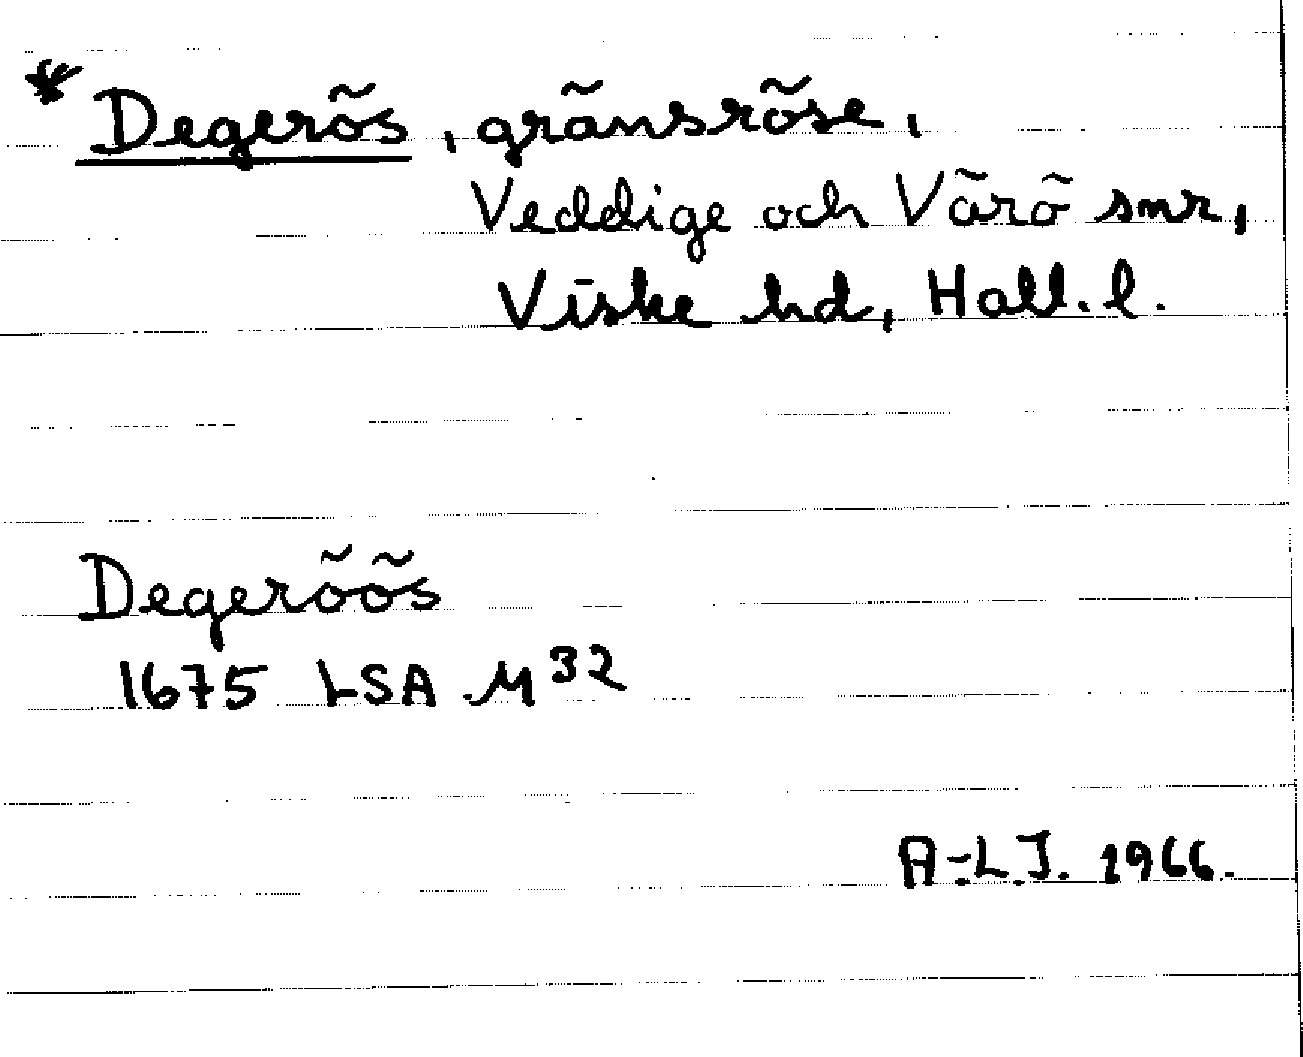 * Degerös, gränsröse,
Veddige och Värö snr,
Viske hd, Hall. l.
Degeröös
1675 LSA M³²
A-L.J. 1966.